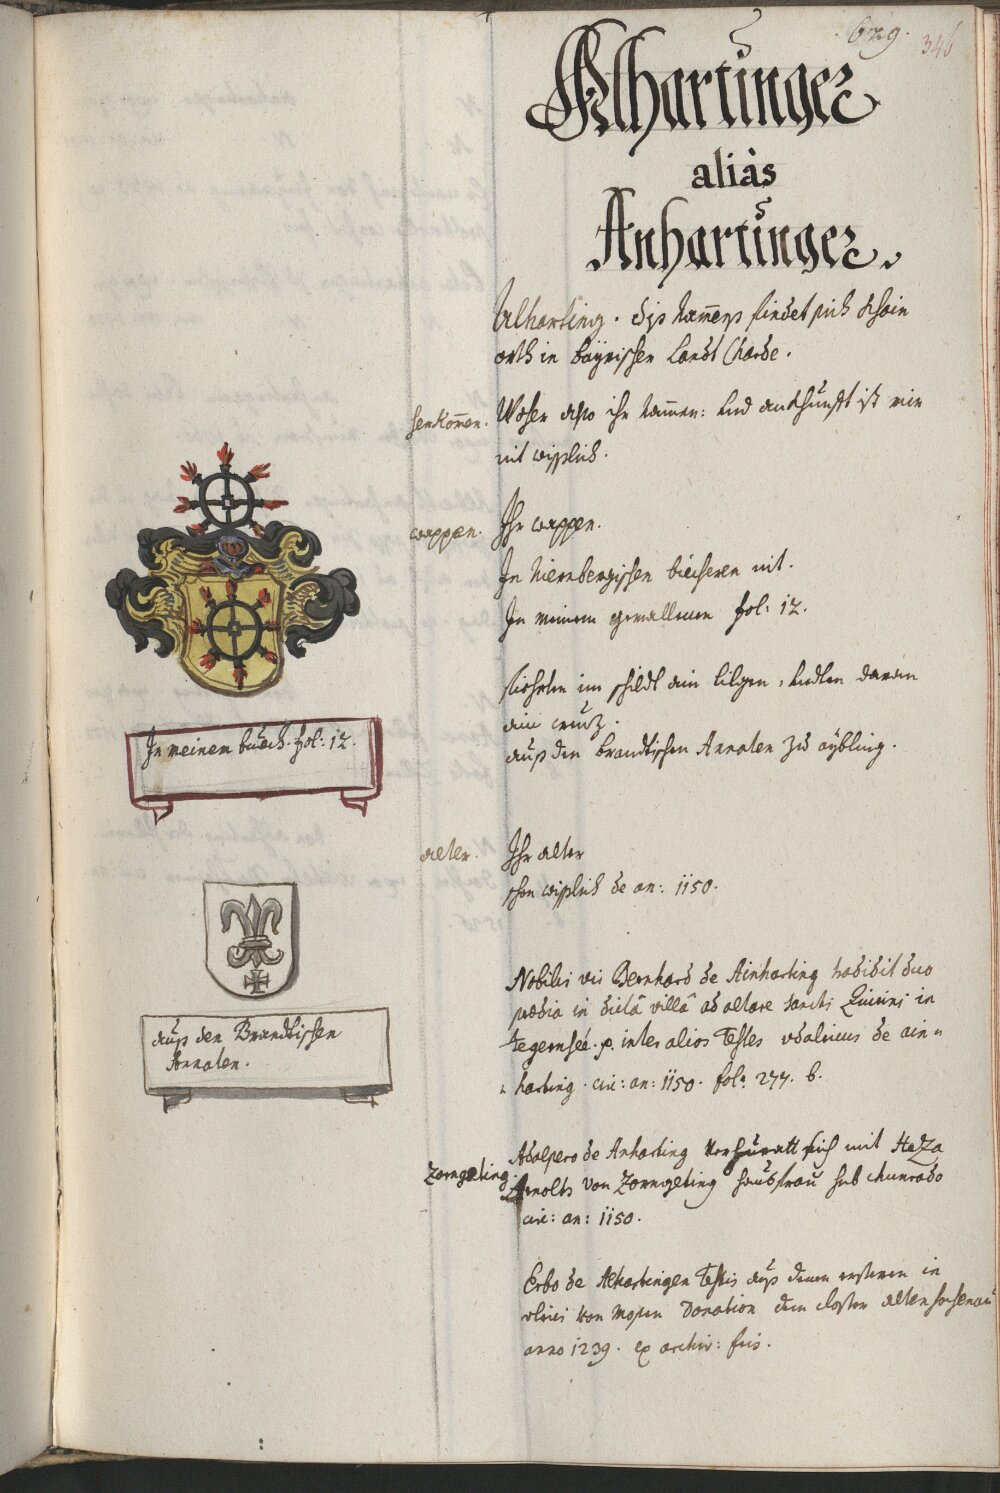 629.
346
Alhartinger
aliàs
Anhartinger.
Alharting. diß Namens findet sich khain
orth in bayrischen Landt Charde.
herkomen.
Woher also ihr Namen: und ankhunfft ist mir
nit wisslich.
wappen.
Ihr wappen.
In Niernbergischen biecheren nit.
In meinem gemallenen fol: 12.
fiehrten im schildt ain lilgen, undten daran
ain creutz.
auß den brandtischen Annalen zu aybling.
In meinem buech. fol: 12.
alter.
Ihr alter
schon wißlich de an: 1150.
auß den Brandtischen
Annalen.
Nobilis vir Bernhard de Ainharting tradidit duo
prædia in dictâ villâ ad altare sancti Quirini in
tegernseé. p. inter alios Testes vdalricus de ain-
harting. circ: an: 1150. fol: 277. b.
Zorngelting.
Adalpero de Anharting verheuratt sich mit Hazza
Arnolts von Zorngelting hausfrau sub Chunrado
circ: an: 1150.
Erbo de Alhartingen Testis auß denen ersteren in
vlrici von Mosen Donation dem closter altenhohenau
anno 1239. ex archiv: fris.